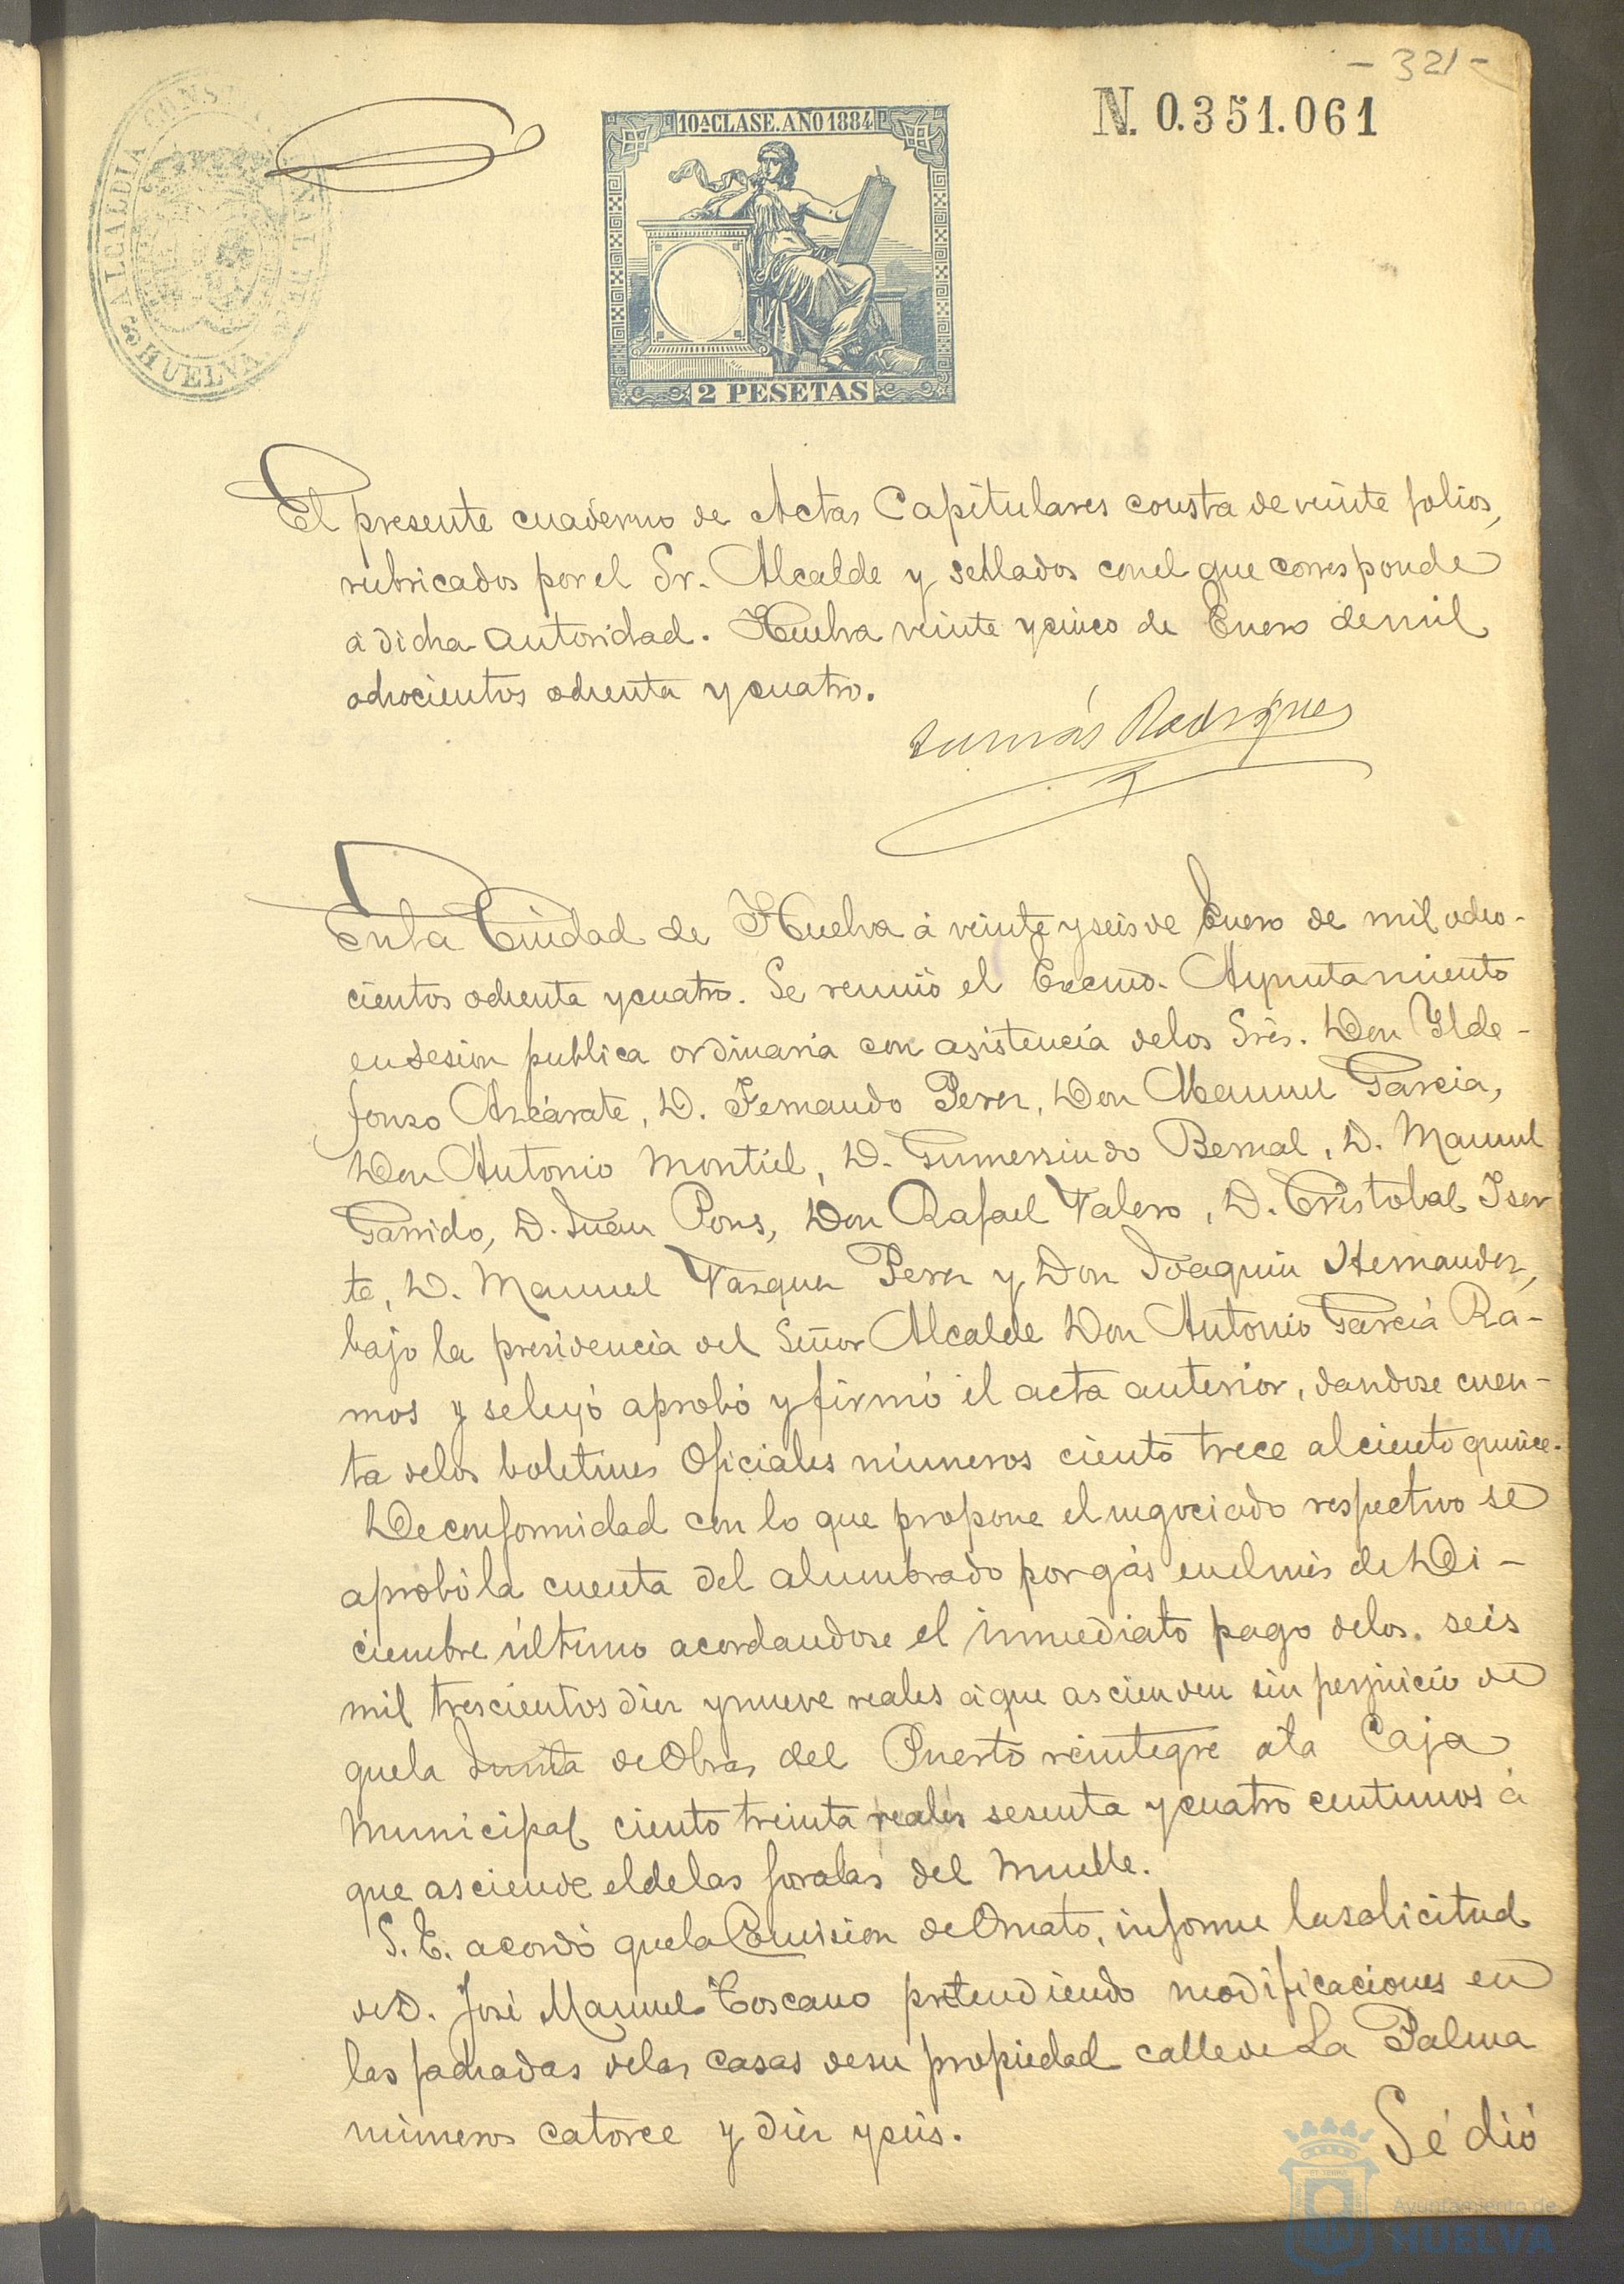 - 321 -
N. 0.351.061
ALCALDIA CONS
HUELVA
10ª CLASE. AÑO 1884
2 PESETAS
El presente cuaderno de Actas Capitulares consta de veinte folios,
rubricados por el Sr. Alcalde y sellados con el que corresponde
á dicha autoridad. Huelva veinte y cinco de Enero de mil
ochocientos ochenta y cuatro.
Tomás Rodriguez
En la Ciudad de Huelva á veinte y seis de Enero de mil ocho-
cientos ochenta y cuatro. Se reunió el Excmo. Ayuntamiento
en sesion publica ordinaria con asistencia de los Sres. Don Ilde-
fonso Azcárate, D. Fernando Perez, Don Manuel Garcia,
Don Antonio Montiel, D. Gumersindo Bernal, D. Manuel
Garrido, D. Juan Pons, Don Rafael Valero, D. Cristobal Iser
te, D. Manuel Vazquez Perez y Don Joaquin Hernandez,
bajo la presidencia del Señor Alcalde Don Antonio García Ra-
mos y se leyó aprobó y firmó el acta anterior, dandose cuen-
ta de los boletines Oficiales números ciento trece al ciento quince.
De conformidad con lo que propone el negociado respectivo se
aprobó la cuenta del alumbrado por gás en el mes de Di-
ciembre último acordandose el inmediato pago de los. seis
mil trescientos diez y nueve reales á que ascienden sin perjuicio de
que la Junta de Obras del Puerto reintegre á la Caja
Municipal ciento treinta reales sesenta y cuatro centimos á
que asciende el de las farolas del Muelle.
S. E. acordó que la Comision de Ornato, informe la solicitud
de D. José Manuel Toscano pretendiendo modificaciones en
las fachadas de las casas de su propiedad calle de La Palma
números catorce y diez y seis.
Se dió
Ayuntamiento de
HUELVA